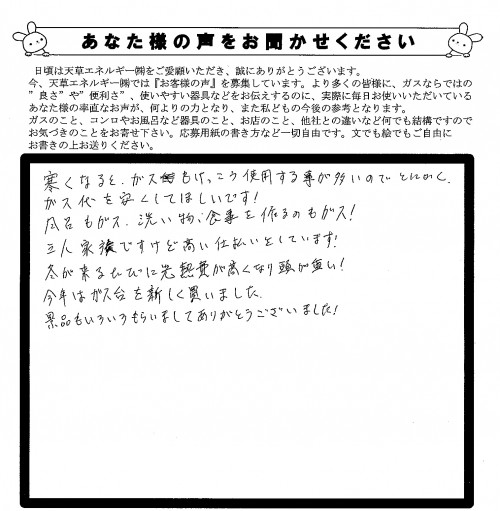 あなた様の声をお聞かせください
日頃は天草エネルギー㈱をご愛顧いただき、誠にありがとうございます。
今、天草エネルギー㈱では『お客様の声』を募集しています。より多くの皆様に、ガスならではの
”良さ”や”便利さ”、使いやすい器具などをお伝えするのに、実際に毎日お使いいただいている
あなた様の率直なお声が、何よりの力となり、また私どもの今後の参考となります。
ガスのこと、コンロやお風呂など器具のこと、お店のこと、他社との違いなど何でも結構ですので
お気づきのことをお寄せ下さい。応募用紙の書き方など一切自由です。文でも絵でもご自由に
お書きの上お送りください。
寒くなると、ガスもけっこう使用する事が多いのでとにかく、
ガス代を安くしてほしいです!
風呂もガス、洗い物、食事を作るのもガス!
三人家族ですけど高い仕払いをしています!
冬が来るたびに光熱費が高くなり頭が重い!
今年はガス台を新しく買いました。
景品もいろいろもらいましてありがとうございました!